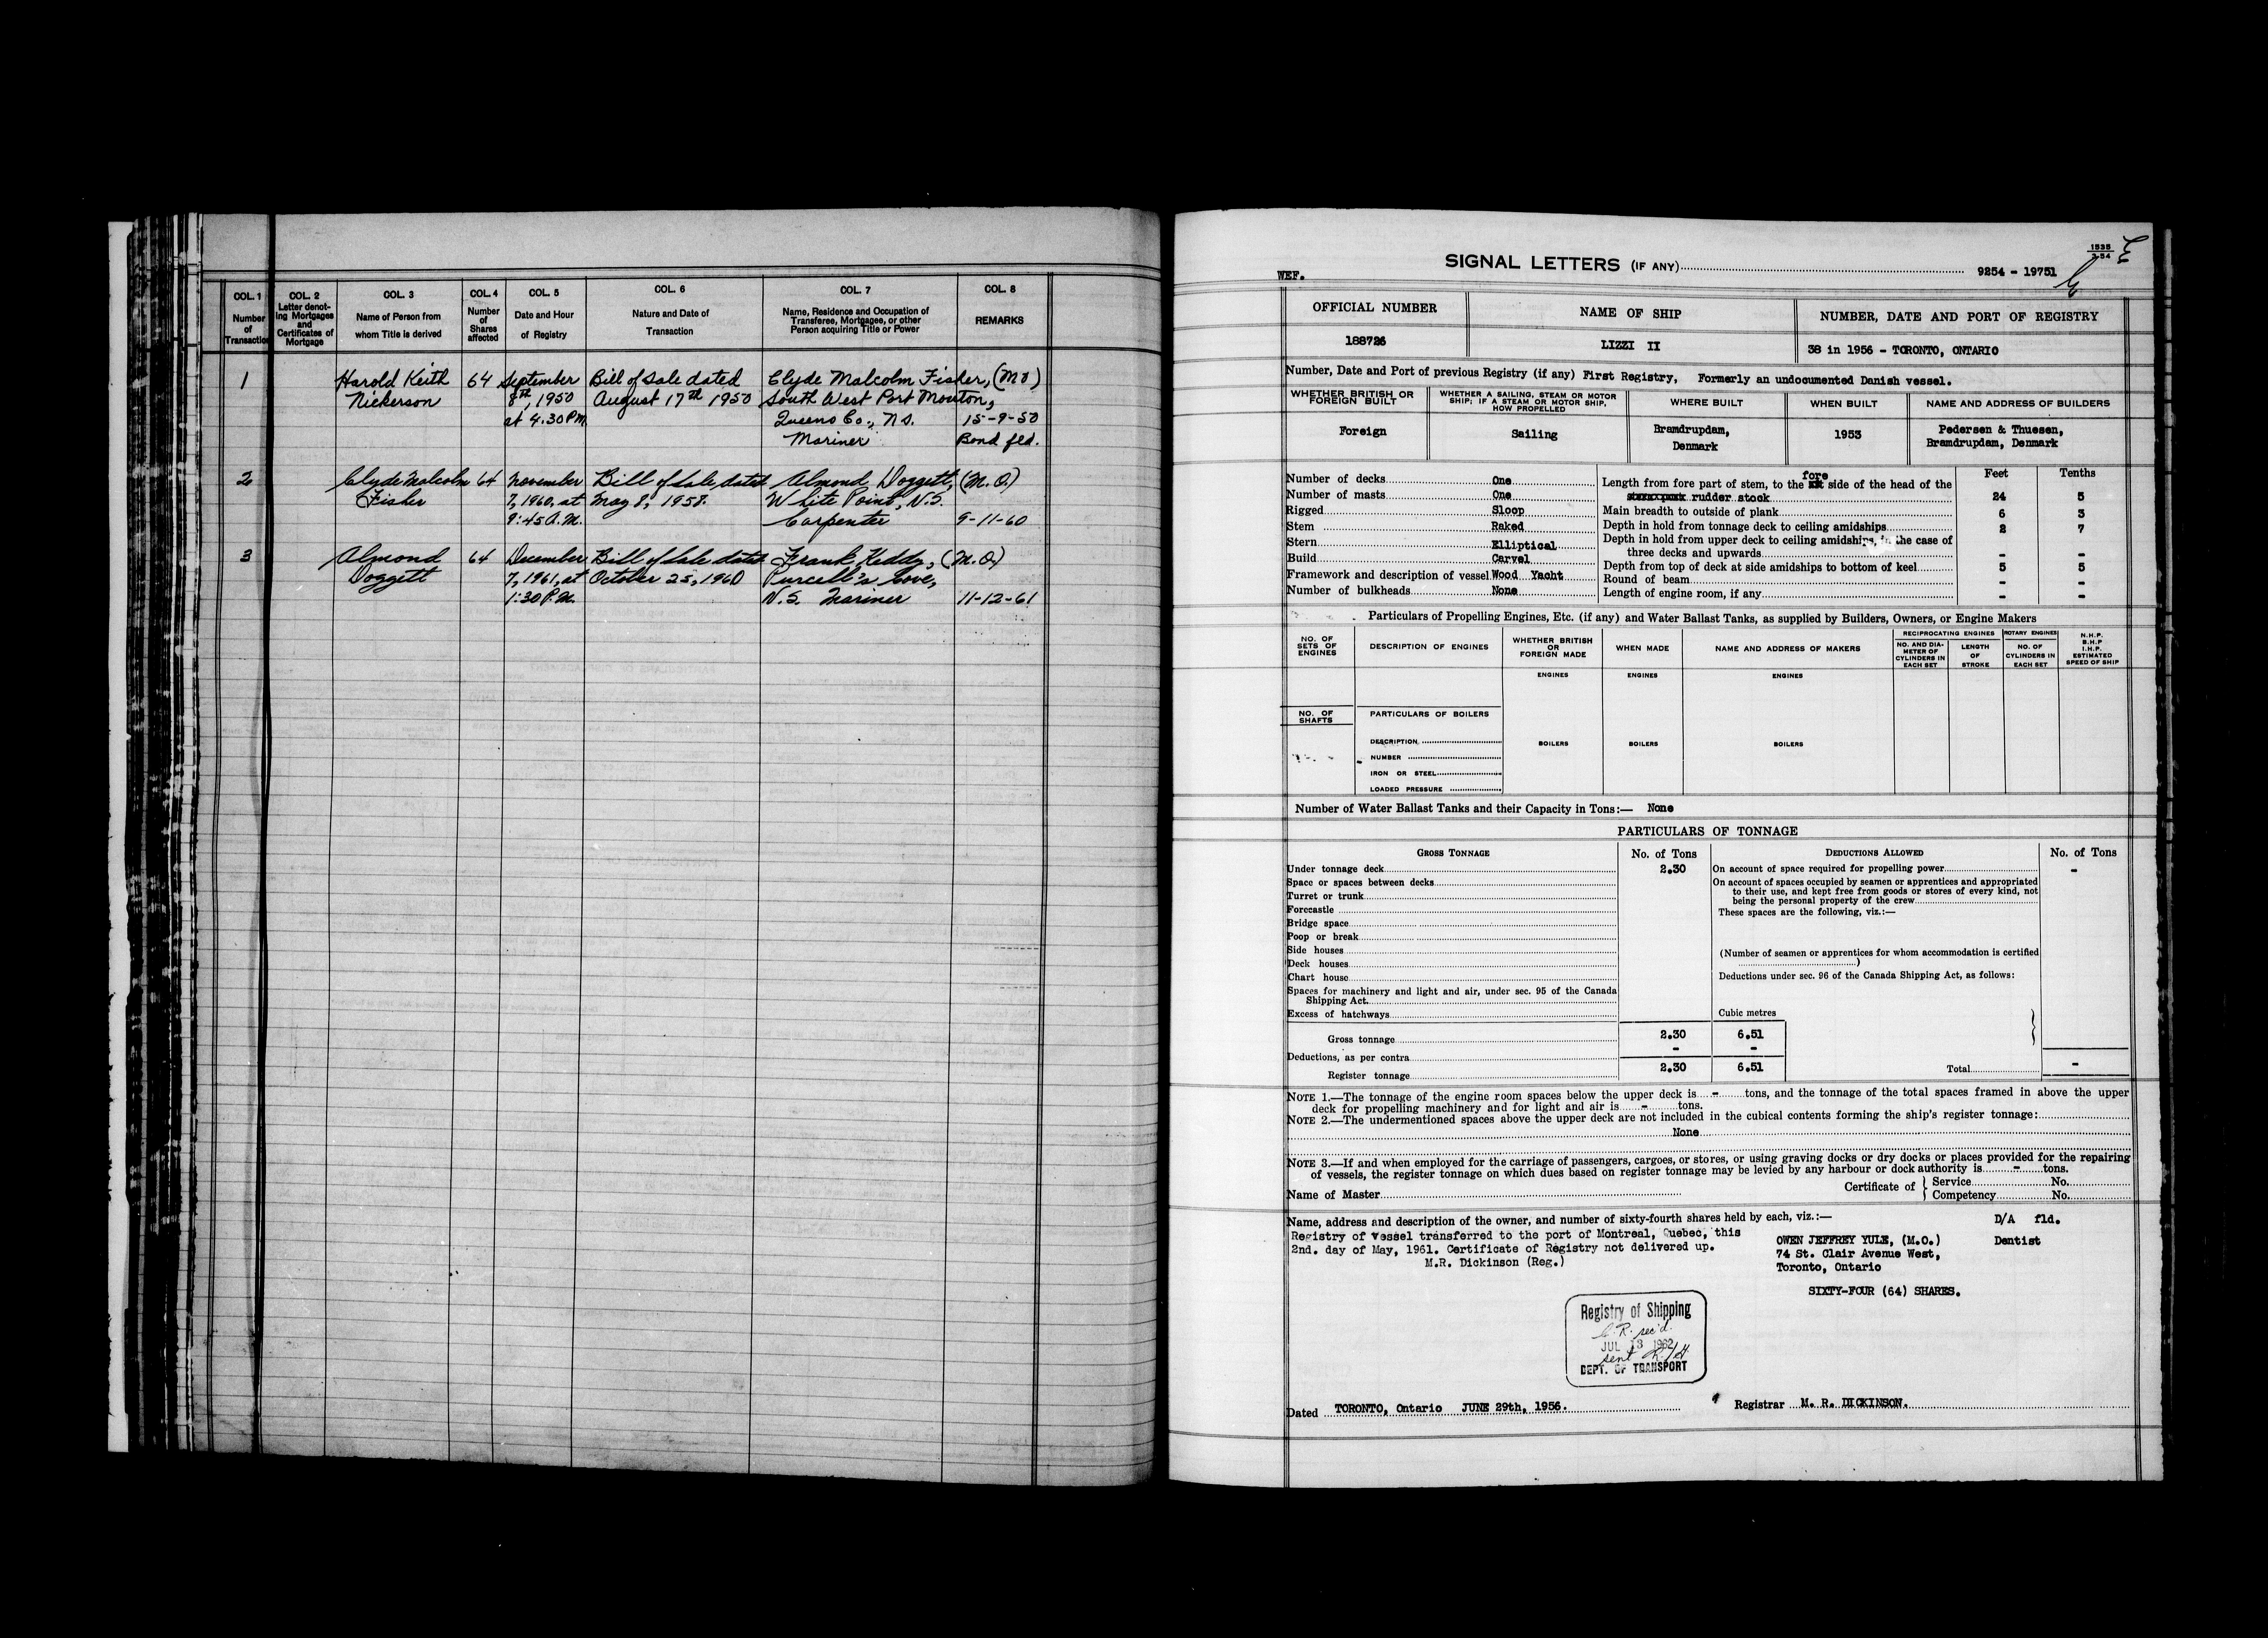 COL. 1
Number
of
Transaction
COL. 2
Letter denot-
ing Mortgages
and
Certificates of
Mortgage
COL. 3
Name of Person from
whom Title is derived
COL. 4
Number
of
Shares
affected
COL. 5
Date and Hour
of Registry
COL. 6
Nature and Date of
Transaction
COL. 7
Name, Residence and Occupation of
Transferee, Mortgagee, or other
Person acquiring Title or Power
COL. 8
REMARKS
1 Harold Keith 64 September Bill of Sale dated Clyde Malcolm Fisher, (M O)
Nickerson 8th, 1950 August 17th 1950 South West Port Mouton,
at 4.30 P.M. Queens Co., N.S. 15-9-50
Mariner Bond fld.
2 Clyde Malcolm 64 November Bill of Sale, dated Almond Doggett, (M.O)
Fisher 7, 1960, at May 8, 1958. White Point, N.S.
9:45 A.M. Carpenter 9-11-60
3 Almond 64 December Bill of Sale dated Frank Keddy, (M.O)
Doggett 7, 1961, at October 25, 1960 Purcell's Cove,
1:30 P.M. N.S. Mariner 11-12-61
1535
WEF. SIGNAL LETTERS (IF ANY) 9254 - 19751
OFFICIAL NUMBER
188726
NAME OF SHIP
LIZZI II
NUMBER, DATE AND PORT OF REGISTRY
38 in 1956 - TORONTO, ONTARIO
Number, Date and Port of previous Registry (if any) First Registry, Formerly an undocumented Danish vessel.
WHETHER BRITISH OR
FOREIGN BUILT
Foreign
WHETHER A SAILING, STEAM OR MOTOR
SHIP; IF A STEAM OR MOTOR SHIP,
HOW PROPELLED
Sailing
WHERE BUILT
Bramdrupdam,
Denmark
WHEN BUILT
1953
NAME AND ADDRESS OF BUILDERS
Pedersen & Thuesen,
Bramdrupdam, Denmark
Number of decks One
Number of masts One
Rigged Sloop
Stem Raked
Stern Elliptical
Build Carvel
Framework and description of vessel Wood Yacht
Number of bulkheads None
Feet Tenths
fore
Length from fore part of stem, to the side of the head of the
rudder stock 24 5
Main breadth to outside of plank 6 3
Depth in hold from tonnage deck to ceiling amidships 2 7
Depth in hold from upper deck to ceiling amidships, in the case of
three decks and upwards - -
Depth from top of deck at side amidships to bottom of keel 5 5
Round of beam - -
Length of engine room, if any - -
Particulars of Propelling Engines, Etc. (if any) and Water Ballast Tanks, as supplied by Builders, Owners, or Engine Makers
NO. OF
SETS OF
ENGINES
DESCRIPTION OF ENGINES
WHETHER BRITISH
OR
FOREIGN MADE
WHEN MADE
NAME AND ADDRESS OF MAKERS
RECIPROCATING ENGINES
NO. AND DIA-
METER OF
CYLINDERS IN
EACH SET
LENGTH
OF
STROKE
ROTARY ENGINES
NO. OF
CYLINDERS IN
EACH SET
N.H.P.
B.H.P
I.H.P.
ESTIMATED
SPEED OF SHIP
ENGINES ENGINES ENGINES
NO. OF
SHAFTS
PARTICULARS OF BOILERS
DESCRIPTION
BOILERS BOILERS BOILERS
NUMBER
IRON OR STEEL
LOADED PRESSURE
Number of Water Ballast Tanks and their Capacity in Tons:— None
PARTICULARS OF TONNAGE
GROSS TONNAGE No. of Tons
Under tonnage deck 2.30
Space or spaces between decks
Turret or trunk
Forecastle
Bridge space
Poop or break
Side houses
Deck houses
Chart house
Spaces for machinery and light and air, under sec. 95 of the Canada
Shipping Act.
Excess of hatchways
Cubic metres
Gross tonnage 2.30 6.51
Deductions, as per contra - -
Register tonnage 2.30 6.51
DEDUCTIONS ALLOWED No. of Tons
On account of space required for propelling power -
On account of spaces occupied by seamen or apprentices and appropriated
to their use, and kept free from goods or stores of every kind, not
being the personal property of the crew
These spaces are the following, viz.:—
(Number of seamen or apprentices for whom accommodation is certified
)
Deductions under sec. 96 of the Canada Shipping Act, as follows:
Total -
NOTE 1.—The tonnage of the engine room spaces below the upper deck is - tons, and the tonnage of the total spaces framed in above the upper
deck for propelling machinery and for light and air is - tons.
NOTE 2.—The undermentioned spaces above the upper deck are not included in the cubical contents forming the ship's register tonnage:
None
NOTE 3.—If and when employed for the carriage of passengers, cargoes, or stores, or using graving docks or dry docks or places provided for the repairing
of vessels, the register tonnage on which dues based on register tonnage may be levied by any harbour or dock authority is - tons.
Name of Master
Certificate of { Service No.
Competency No.
Name, address and description of the owner, and number of sixty-fourth shares held by each, viz.:—
Registry of vessel transferred to the port of Montreal, Quebec, this
2nd. day of May, 1961. Certificate of Registry not delivered up.
M.R. Dickinson (Reg.)
D/A fld.
OWEN JEFFREY YULE, (M.O.) Dentist
74 St. Clair Avenue West,
Toronto, Ontario
SIXTY-FOUR (64) SHARES.
Registry of Shipping
C.R. rec'd.
JUL 13 1962
sent
DEPT. OF TRANSPORT
Dated TORONTO, Ontario JUNE 29th, 1956.
Registrar M. R. DICKINSON.